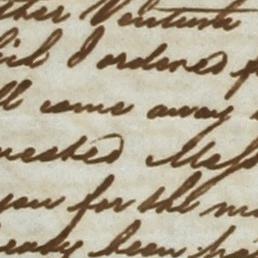 ther Venture
hich I ordered f
ll come away
uested Mess
you for the m
lready been pa